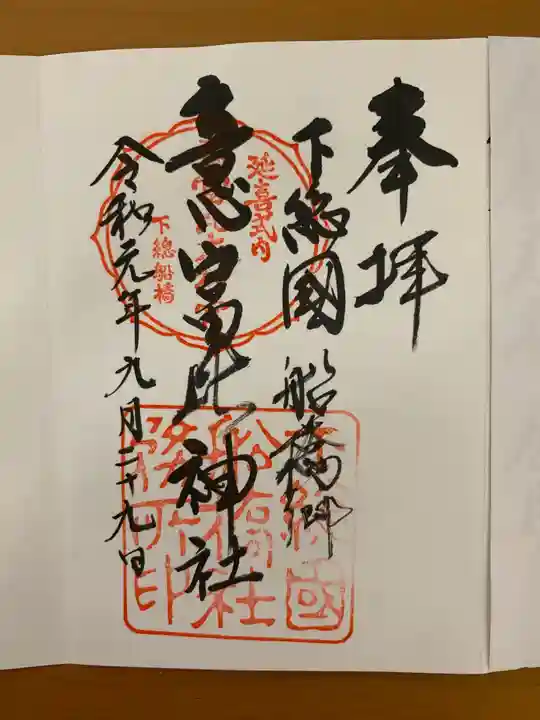 奉拝
下總國 船橋郷
意富比神社
令和元年九月二十九日
延喜式内
下總船橋